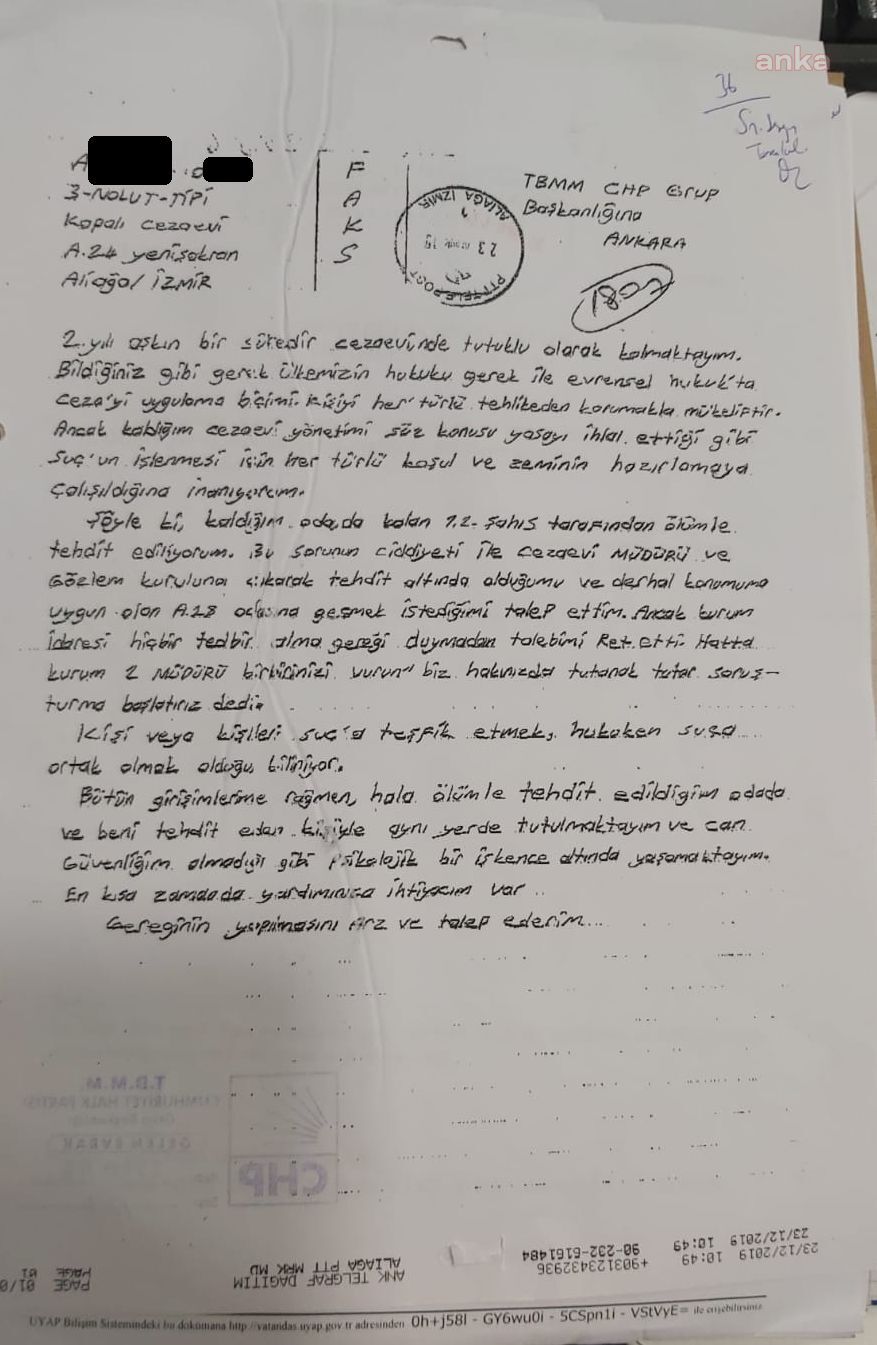 anka
36
A
3-NOLUT-TİPİ
Kapalı cezaevi
A.24 yenişakran
Aliağa/İZMİR
F
A
K
S
ALİAĞA İZMİR
23
19
TBMM CHP Grup
Başkanlığına
ANKARA
2.yılı aşkın bir süredir cezaevinde tutuklu olarak kalmaktayım.
Bildiğiniz gibi gerek ülkemizin hukuku gerek ile evrensel hukuk'ta
ceza'yi uygulama biçimi. Kişiyi her'türlü tehlikeden korumakla mükeliptir.
Ancak kaldığım cezaevi yönetimi söz konusu yasayı ihlal ettiği gibi
Suç'un işlenmesi için her türlü koşul ve zeminin hazırlamaya
çalışıldığına inanıyorum.
Şöyle ki, kaldığım odada kalan 1.2. şahıs tarafından ölümle
tehdit ediliyorum. Bu sorunun ciddiyeti ile cezaevi MÜDÜRÜ ve
Gözlem kuruluna çıkarak tehdit altında olduğumu ve derhal konumuma
uygun olan A.28 odasına geçmek istediğimi talep ettim. Ancak kurum
İdaresi hiçbir tedbir alma gereği duymadan talebimi Ret.etti. Hatta
kurum 2 MÜDÜRÜ birbirinizi vurun" biz hakınızda tutanak tutar soruş-
turma başlatırız dedi.
Kişi veya kişileri suç'a teşfik etmek, hukuken suça
ortak olmak olduğu biliniyor.
Bütün girişimlerime rağmen, hala ölümle tehdit edildiğim odada
ve beni tehdit eden kişiyle aynı yerde tutulmaktayım ve can
Güvenliğim olmadığı gibi psikolojik bir işkence altında yaşamaktayım.
En kısa zamanda yardımınıza ihtiyacım var..
Gereğinin yapılmasını Arz ve talep ederim...
T.B.M.M.
CUMHURİYET HALK PARTİSİ
GELEN EVRAK
CHP
23/12/2019 10:49 90-232-6161484 ALIAGA PTT MRK MD PAGE 01
23/12/2019 10:49 +903123432936 ANK TELGRAF DAGITIM PAGE 01/0
UYAP Bilişim Sistemindeki bu dokümana http://vatandas.uyap.gov.tr adresinden 0h+j58I - GY6wu0i - 5CSpn1i - VStVyE= ile erişebilirsiniz